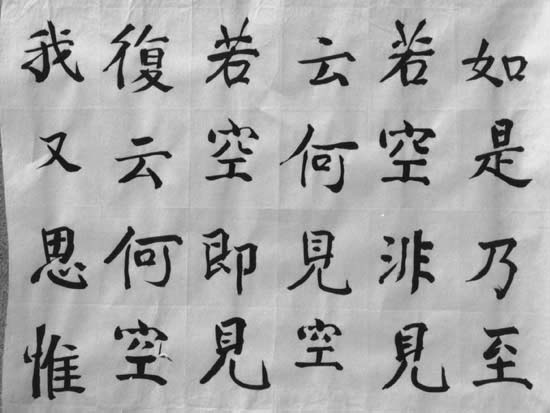 如是乃至
若空非見
云何見空
若空即見
復云何空
我又思惟